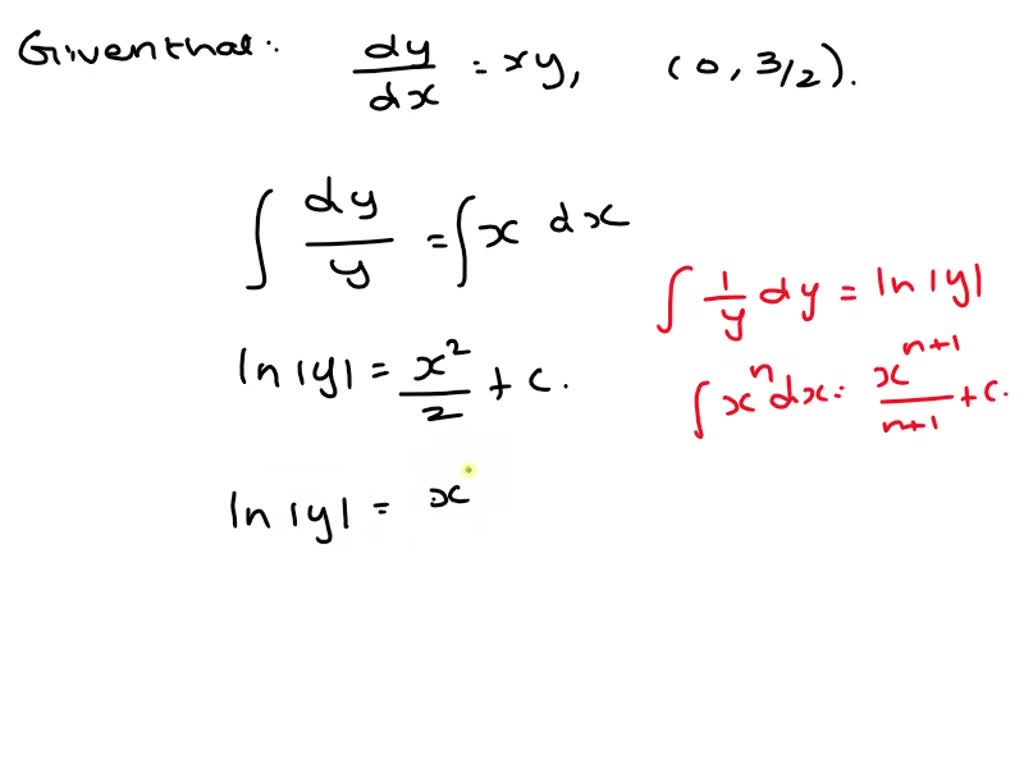 Giventhat: dy/dx = xy, (0, 3/2).
∫ dy/y = ∫ x dx
∫ 1/y dy = ln |y|
ln |y| = x²/2 + c.
∫ xⁿ dx = xⁿ⁺¹/n+1 + c.
ln |y| = x